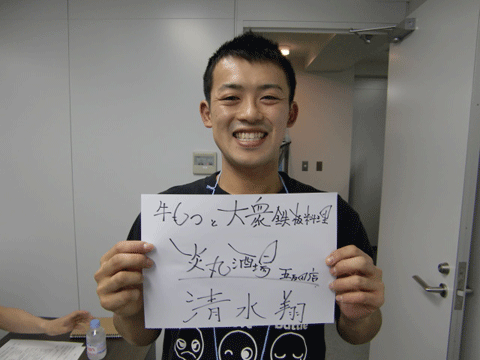 牛もつと大衆鉄板料理
炎丸酒場 五反田店
清水翔